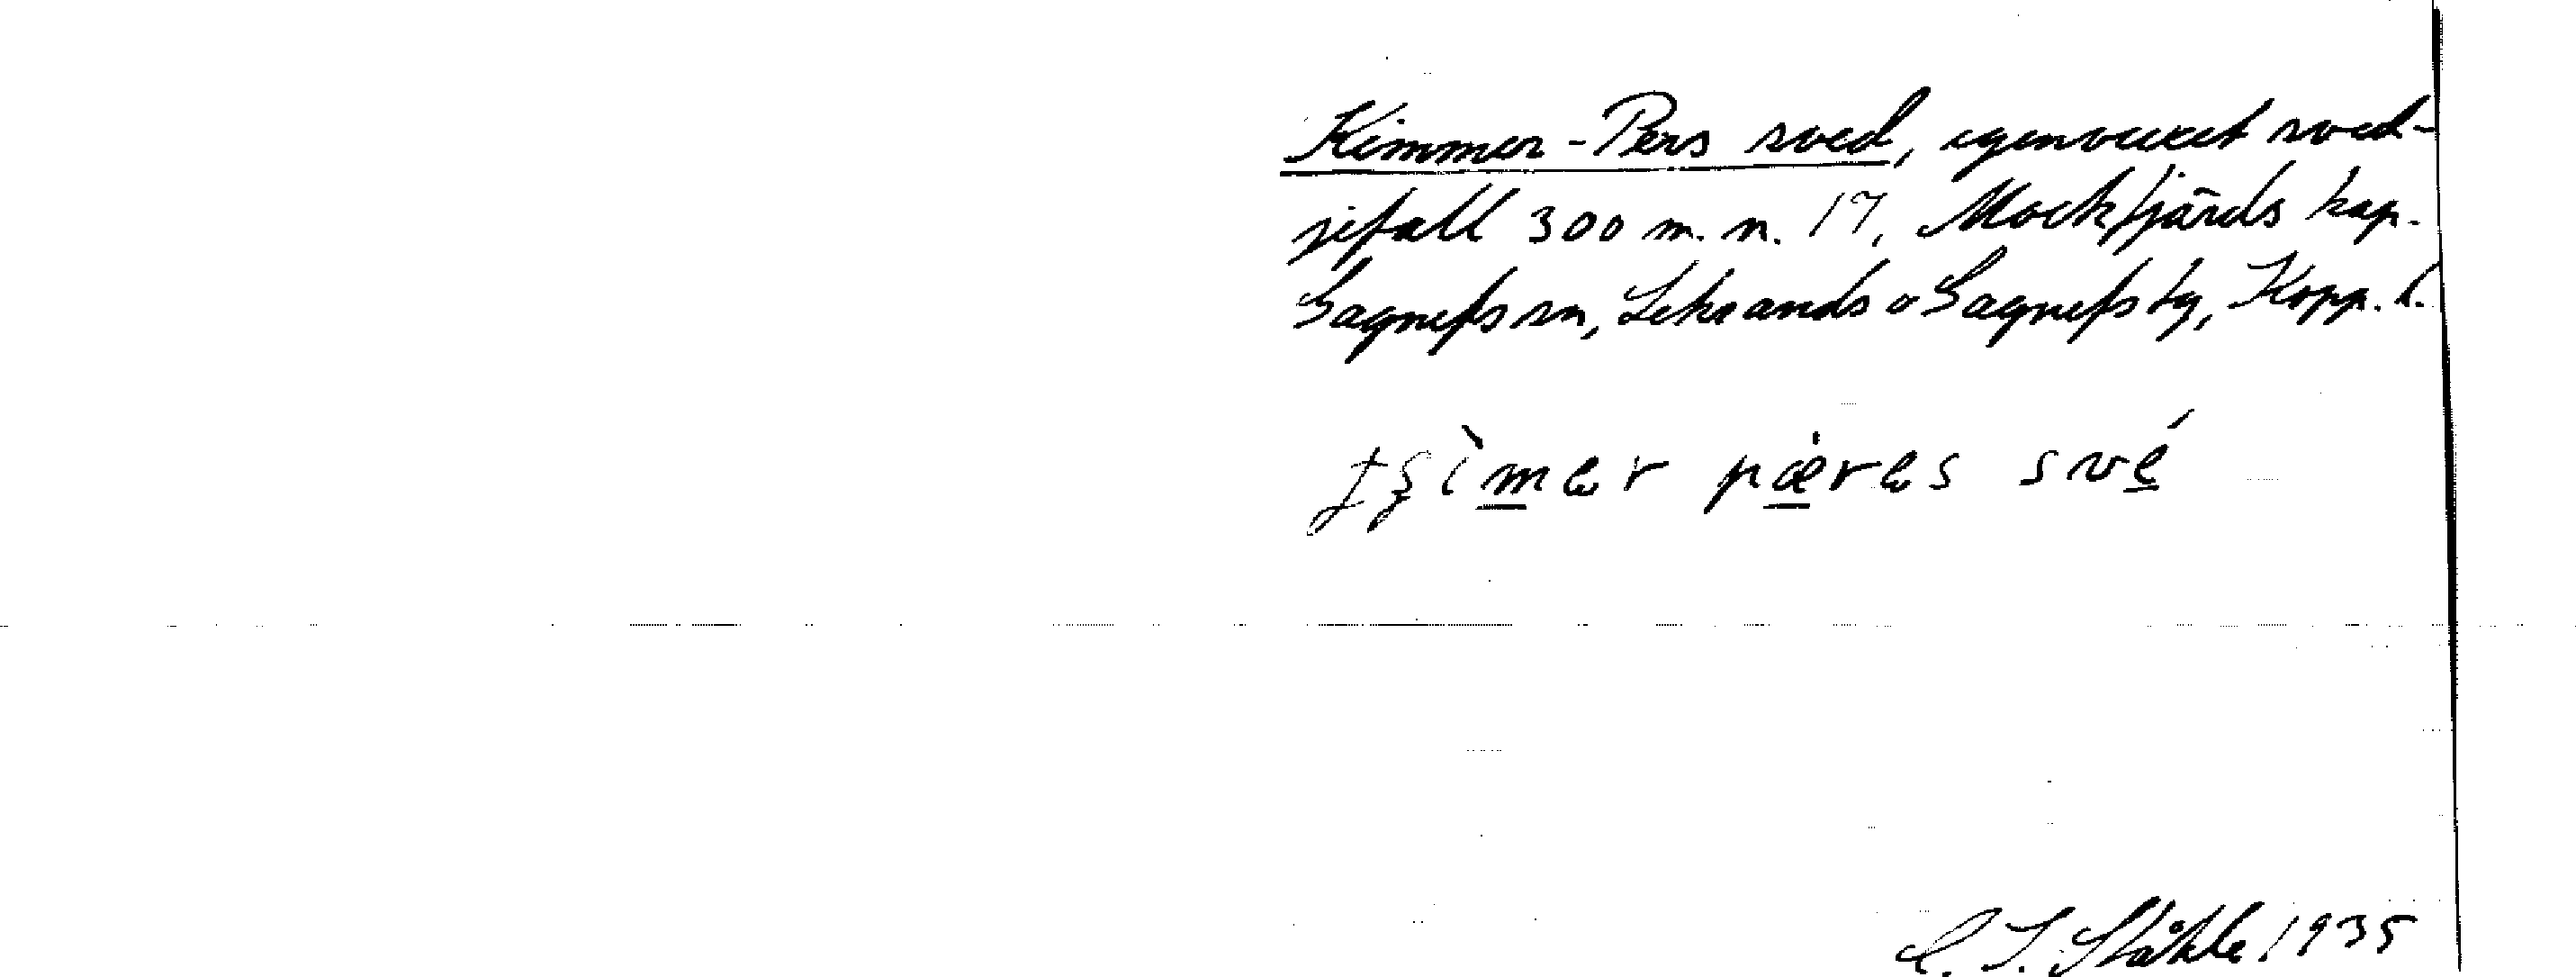 Kimmer-Pers sved, igenvuxet sved-
jefall 300 m. n. 17, Mockfjärds kap.
Gagnefs sn, Leksands o Gagnefs tg, Kopp. l.
pæ̀res své
C. I. Ståhle 1935